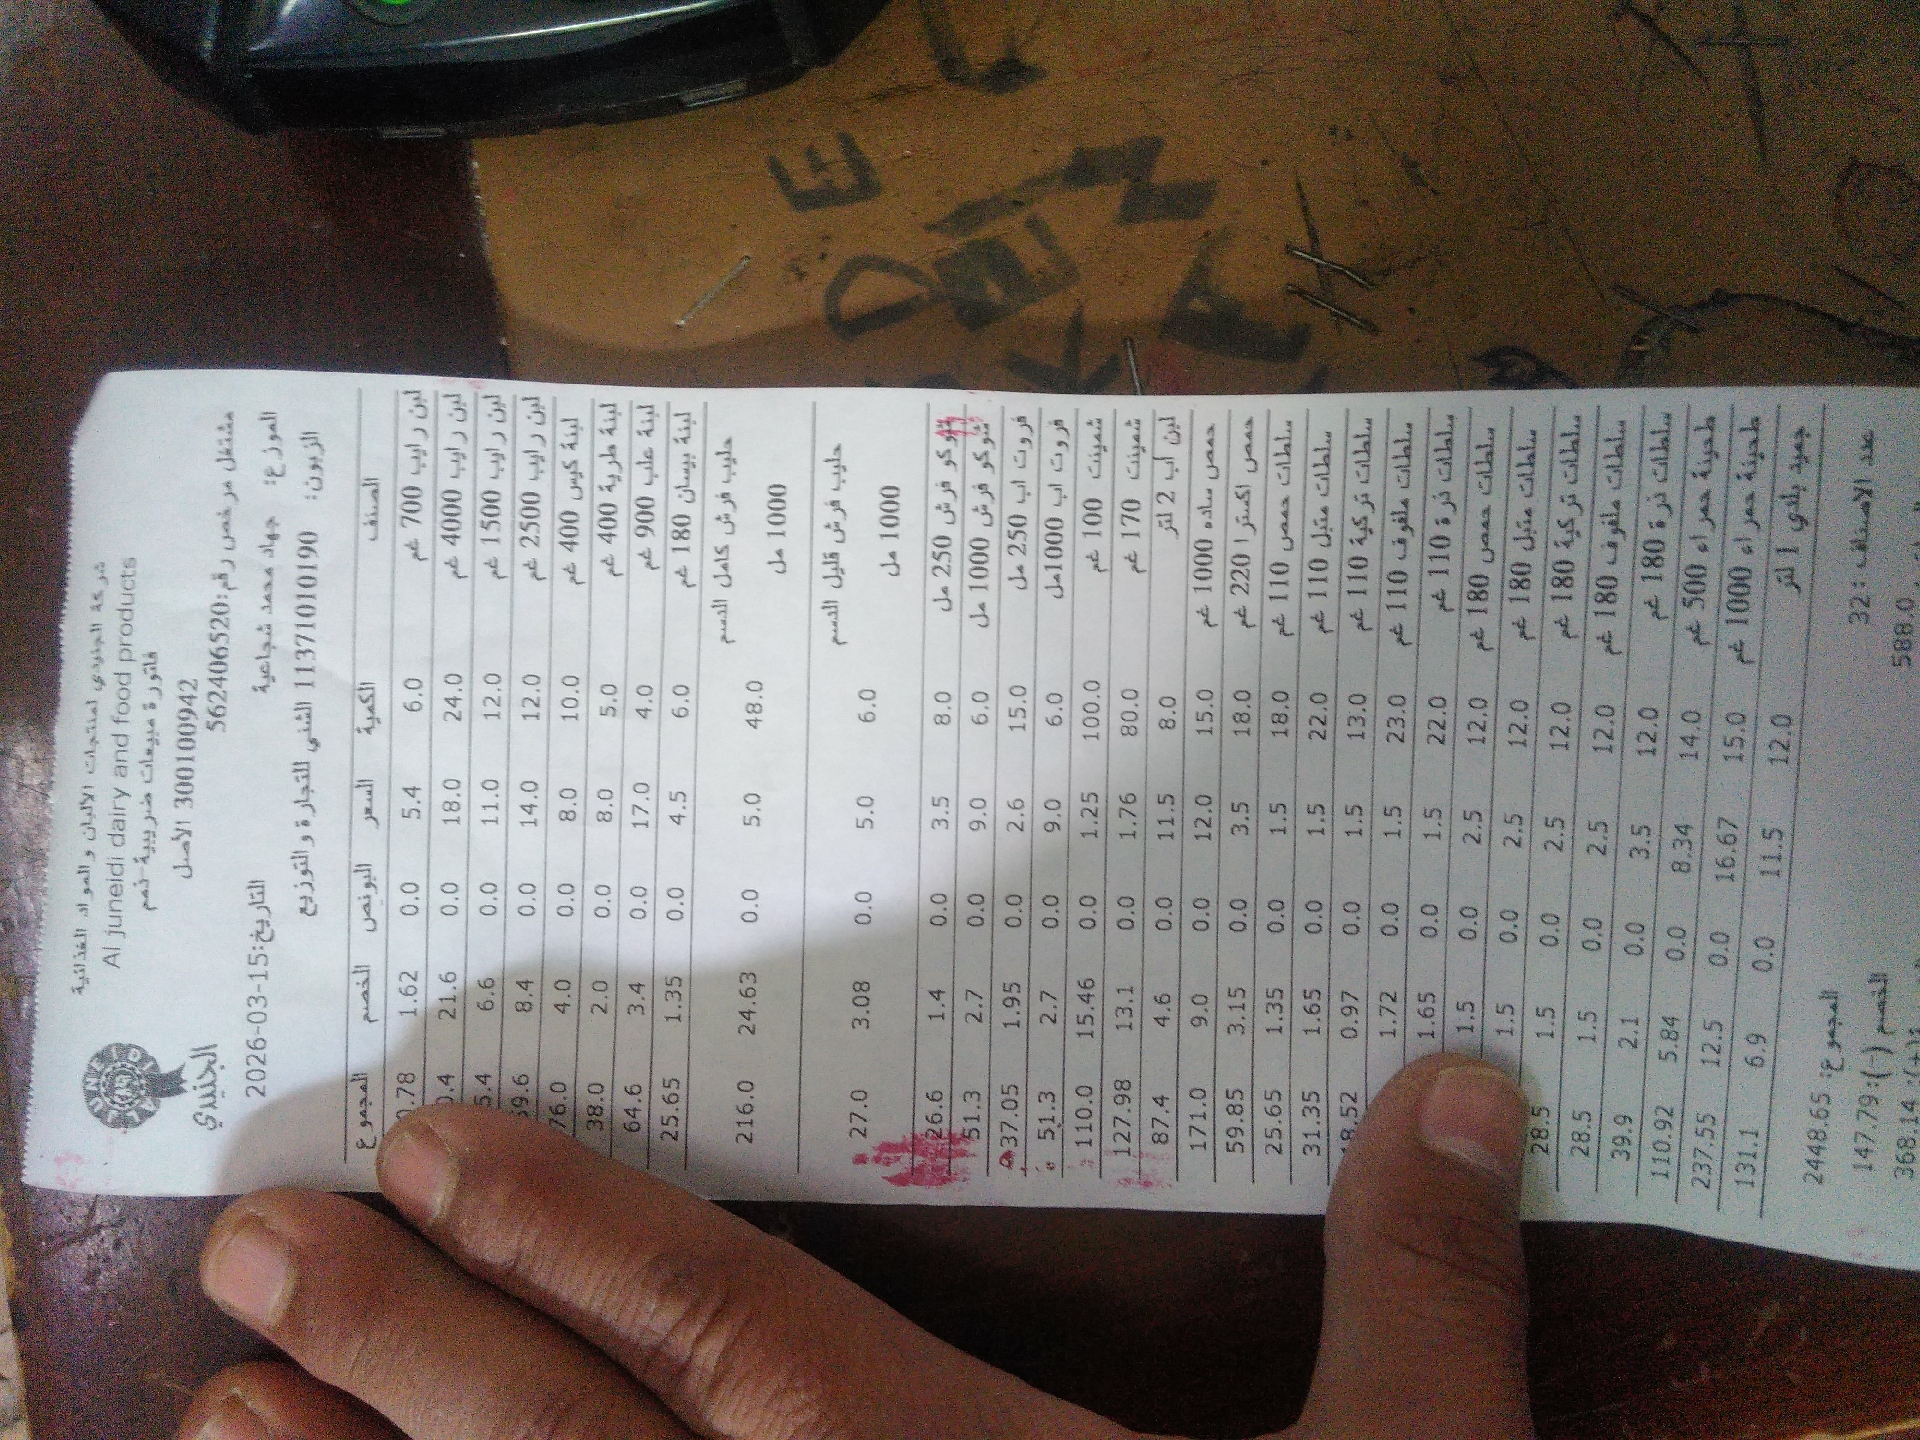 شركة الجنيدي لمنتجات الالبان و المواد الغذائية
Al juneidi dairy and food products
فاتورة مبيعات ضريبية-ذمم
300100942 الأصل
الجنيدي
مشتغل مرخص رقم:562406520
الموزع: جهاد محمد شجاعية التاريخ:2026-03-15
الزبون: 11371010190 الشني للتجارة و التوزيع
الصنف الكمية السعر البونص الخصم المجموع
لبن رايب 700 غم 6.0 5.4 0.0 1.62
لبن رايب 4000 غم 24.0 18.0 0.0 21.6
لبن رايب 1500 غم 12.0 11.0 0.0 6.6
لبن رايب 2500 غم 12.0 14.0 0.0 8.4
لبنة كيس 400 غم 10.0 8.0 0.0 4.0 76.0
لبنة طرية 400 غم 5.0 8.0 0.0 2.0 38.0
لبنة علب 900 غم 4.0 17.0 0.0 3.4 64.6
لبنة بيسان 180 غم 6.0 4.5 0.0 1.35 25.65
حليب فرش كامل الدسم
1000 مل 48.0 5.0 0.0 24.63 216.0
حليب فرش قليل الدسم
1000 مل 6.0 5.0 0.0 3.08 27.0
شوكو فرش 250 مل 8.0 3.5 0.0 1.4 26.6
شوكو فرش 1000 مل 6.0 9.0 0.0 2.7 51.3
فروت اب 250 مل 15.0 2.6 0.0 1.95 37.05
فروت اب 1000مل 6.0 9.0 0.0 2.7 51.3
شمينت 100 غم 100.0 1.25 0.0 15.46 110.0
شمينت 170 غم 80.0 1.76 0.0 13.1 127.98
لبن أب 2 لتر 8.0 11.5 0.0 4.6 87.4
حمص ساده 1000 غم 15.0 12.0 0.0 9.0 171.0
حمص اكسترا 220 غم 18.0 3.5 0.0 3.15 59.85
سلطات حمص 110 غم 18.0 1.5 0.0 1.35 25.65
سلطات متبل 110 غم 22.0 1.5 0.0 1.65 31.35
سلطات تركية 110 غم 13.0 1.5 0.0 0.97 18.52
سلطات ملفوف 110 غم 23.0 1.5 0.0 1.72
سلطات ذرة 110 غم 22.0 1.5 0.0 1.65
سلطات حمص 180 غم 12.0 2.5 0.0 1.5
سلطات متبل 180 غم 12.0 2.5 0.0 1.5
سلطات تركية 180 غم 12.0 2.5 0.0 1.5 28.5
سلطات ملفوف 180 غم 12.0 2.5 0.0 1.5 28.5
سلطات ذرة 180 غم 12.0 3.5 0.0 2.1 39.9
طحينة حمراء 500 غم 14.0 8.34 0.0 5.84 110.92
طحينة حمراء 1000 غم 15.0 16.67 0.0 12.5 237.55
جميد بلدي 1 لتر 12.0 11.5 0.0 6.9 131.1
عدد الاصناف: 32 المجموع: 2448.65
588.0 الخصم (-):147.79
368.14